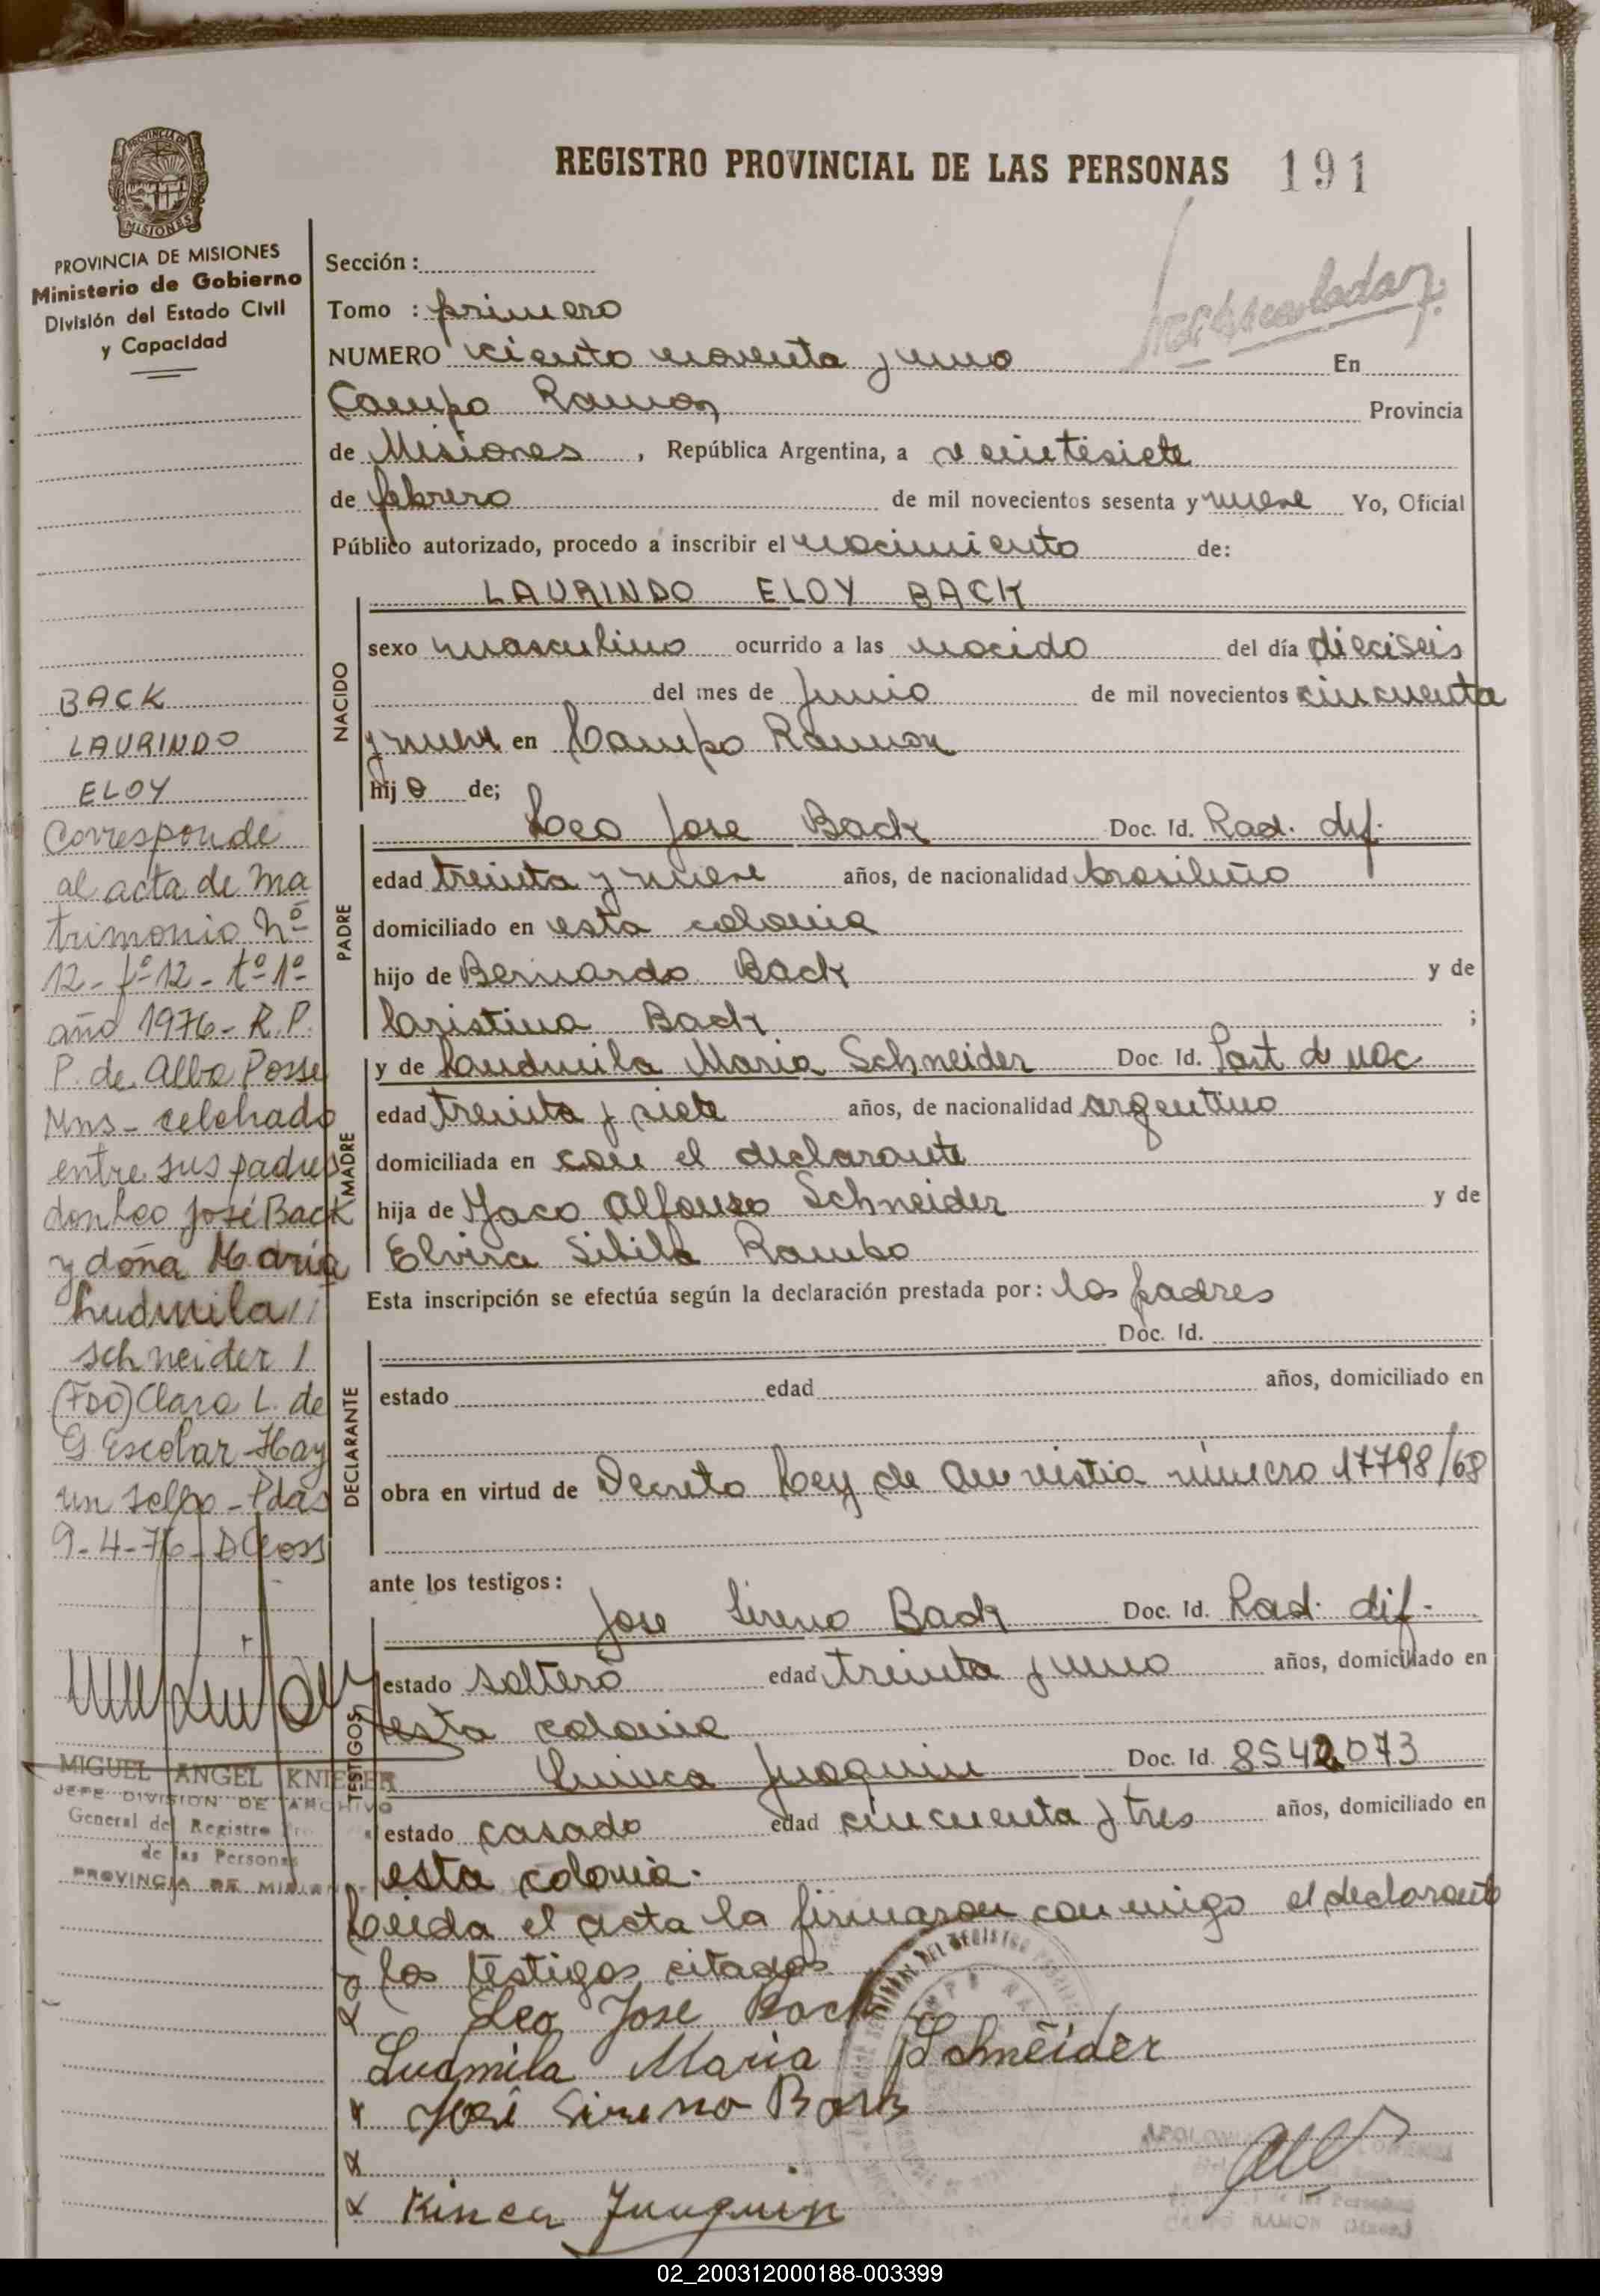 REGISTRO PROVINCIAL DE LAS PERSONAS 191
PROVINCIA DE MISIONES
MISIONES
PROVINCIA DE MISIONES
Ministerio de Gobierno
División del Estado Civil
y Capacidad
BACK
LAURINDO
ELOY
Corresponde
al acta de ma
trimonio Nº
12 - fº 12 - tº 1º
año 1976 - R.P.
P. de Alba Posse
Mns - celebrado
entre sus padres
don Leo José Back
y doña María
Ludmila //
Schneider /
(Fdo) Clara L. de
G. Escobar - Hay
un sello - Pdas
9-4-76 -
MIGUEL ANGEL
JEFE DIVISION DE ARCHIVO
General del Registro
de las Personas
PROVINCIA DE
Sección :
Tomo : primero
NUMERO ciento noventa y uno En
Campo Ramon Provincia
de Misiones , República Argentina, a veintisiete
de febrero de mil novecientos sesenta y nueve Yo, Oficial
Público autorizado, procedo a inscribir el nacimiento de:
LAURINDO ELOY BACK
NACIDO
sexo masculino ocurrido a las nacido del día dieciseis
del mes de junio de mil novecientos cincuenta
y nueve en Campo Ramon
hijo de;
PADRE
Leo Jose Back Doc. Id. Rad. dif.
edad treinta y nueve años, de nacionalidad brasileño
domiciliado en esta colonia
hijo de Bernardo Back y de
Cristina Back ;
MADRE
y de Laudmila Maria Schneider Doc. Id. Part de nac
edad treinta y siete años, de nacionalidad argentina
domiciliada en con el declarante
hija de Jaco Alfonso Schneider y de
Elvira Sibila Rambo
Esta inscripción se efectúa según la declaración prestada por: los padres
DECLARANTE
Doc. Id.
estado edad años, domiciliado en
obra en virtud de Decreto Ley de Amnistia número 17798/68
ante los testigos:
TESTIGOS
Jose Sireno Back Doc. Id. Rad. dif.
estado soltero edad treinta y uno años, domiciliado en
esta colonia
Juaquin Doc. Id. 8542073
estado casado edad cincuenta y tres años, domiciliado en
esta colonia.
Leida el acta la firmaron conmigo el declarante
y los testigos citados
Leo Jose Back
Ludmila Maria Schneider
José Sireno Back
Kinca Juaquin
CAMPO RAMON
02_200312000188-003399